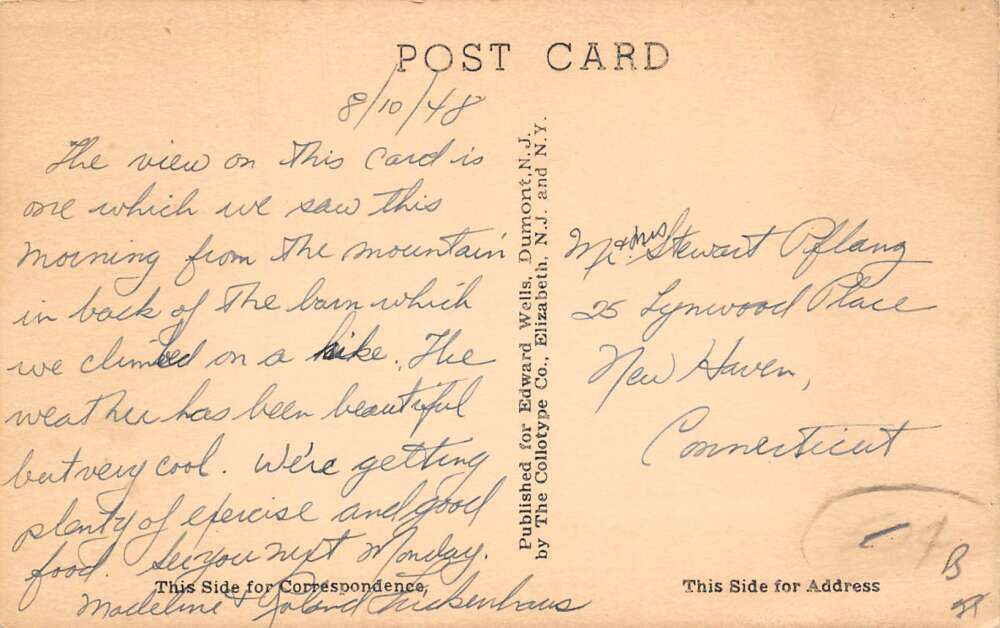 POST CARD
8/10/48
The view on this card is
one which we saw this
morning from the mountain
in back of the barn which
we climbed on a hike. The
weather has been beautiful
but very cool. We're getting
plenty of exercise and good
food. See you next Monday.
This Side for Correspondence
Madeline & Roland Fickenhaus
Published for Edward Wells, Dumont, N. J.
by The Collotype Co., Elizabeth, N.J. and N.Y.
Mr. & Mrs Stewart Pflang
25 Lynwood Place
New Haven,
Connecticut
This Side for Address
B